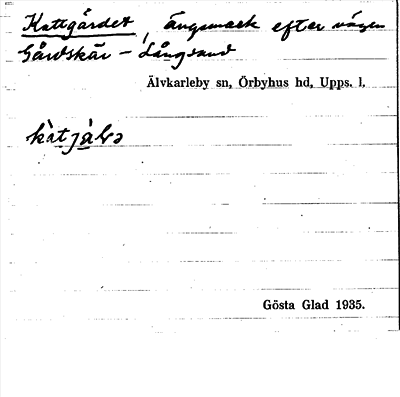 Kattgärdet, ängsmark efter vägen
Gårdskär – Långsand
Älvkarleby sn, Örbyhus hd, Upps. l.
Gösta Glad 1935.